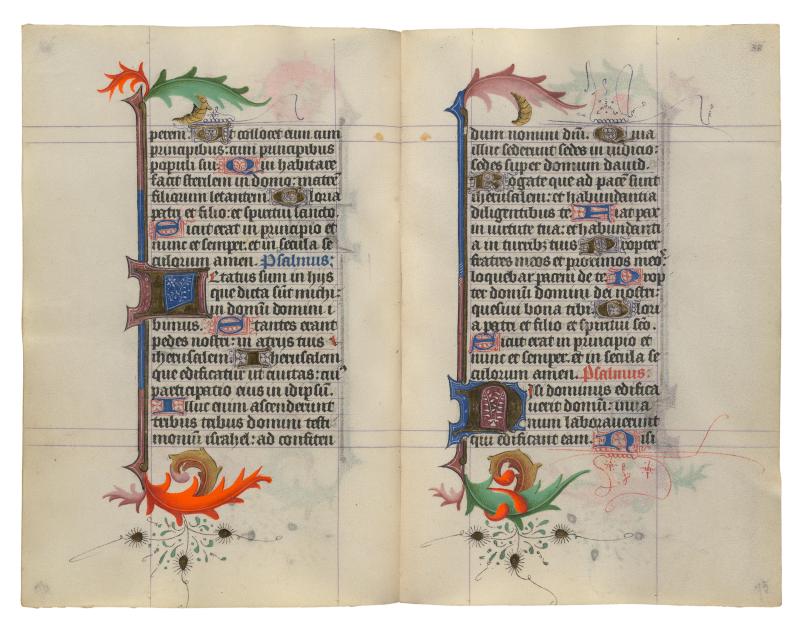 perem. Ut collocet eum cum
principibus: cum principibus
populi sui. Qui habitare
facit sterilem in domo: matrē
filiorum letantem. Gloria
patri et filio: et spiritui sancto.
Sicut erat in principio et
nunc et semper: et in secula se
culorum amen. Psalmus:
Letatus sum in hijs
que dicta sūt michi:
in domū domini i
bimus. Stantes erant
pedes nostri: in atrijs tuis
iherusalem Iherusalem
que edificatur ut ciuitas: cui9
participatio eius in idipsū.
Illuc enim ascenderunt
tribus tribus domini testi
monium israhel: ad confiten
38
dum nomini dn̄i. Quia
illuc sederunt sedes in iudicio:
sedes super domum dauid.
Rogate que ad pacē sunt
iherusalem: et habundantia
diligentibus te. Fiat pax
in uirtute tua: et habundanti
a in turribus tuis Propter
fratres meos et proximos meos
loquebar pacem de te. Prop
ter domū domini dei nostri:
quesiui bona tibi. Glori
a patri et filio et spiritui sc̄o.
Sicut erat in principio et
nunc et semper. et in secula se
culorum amen. Psalmus:
Nisi dominus edifica
uerit domū: in ua
num laborauerunt
qui edificant eam. Nisi